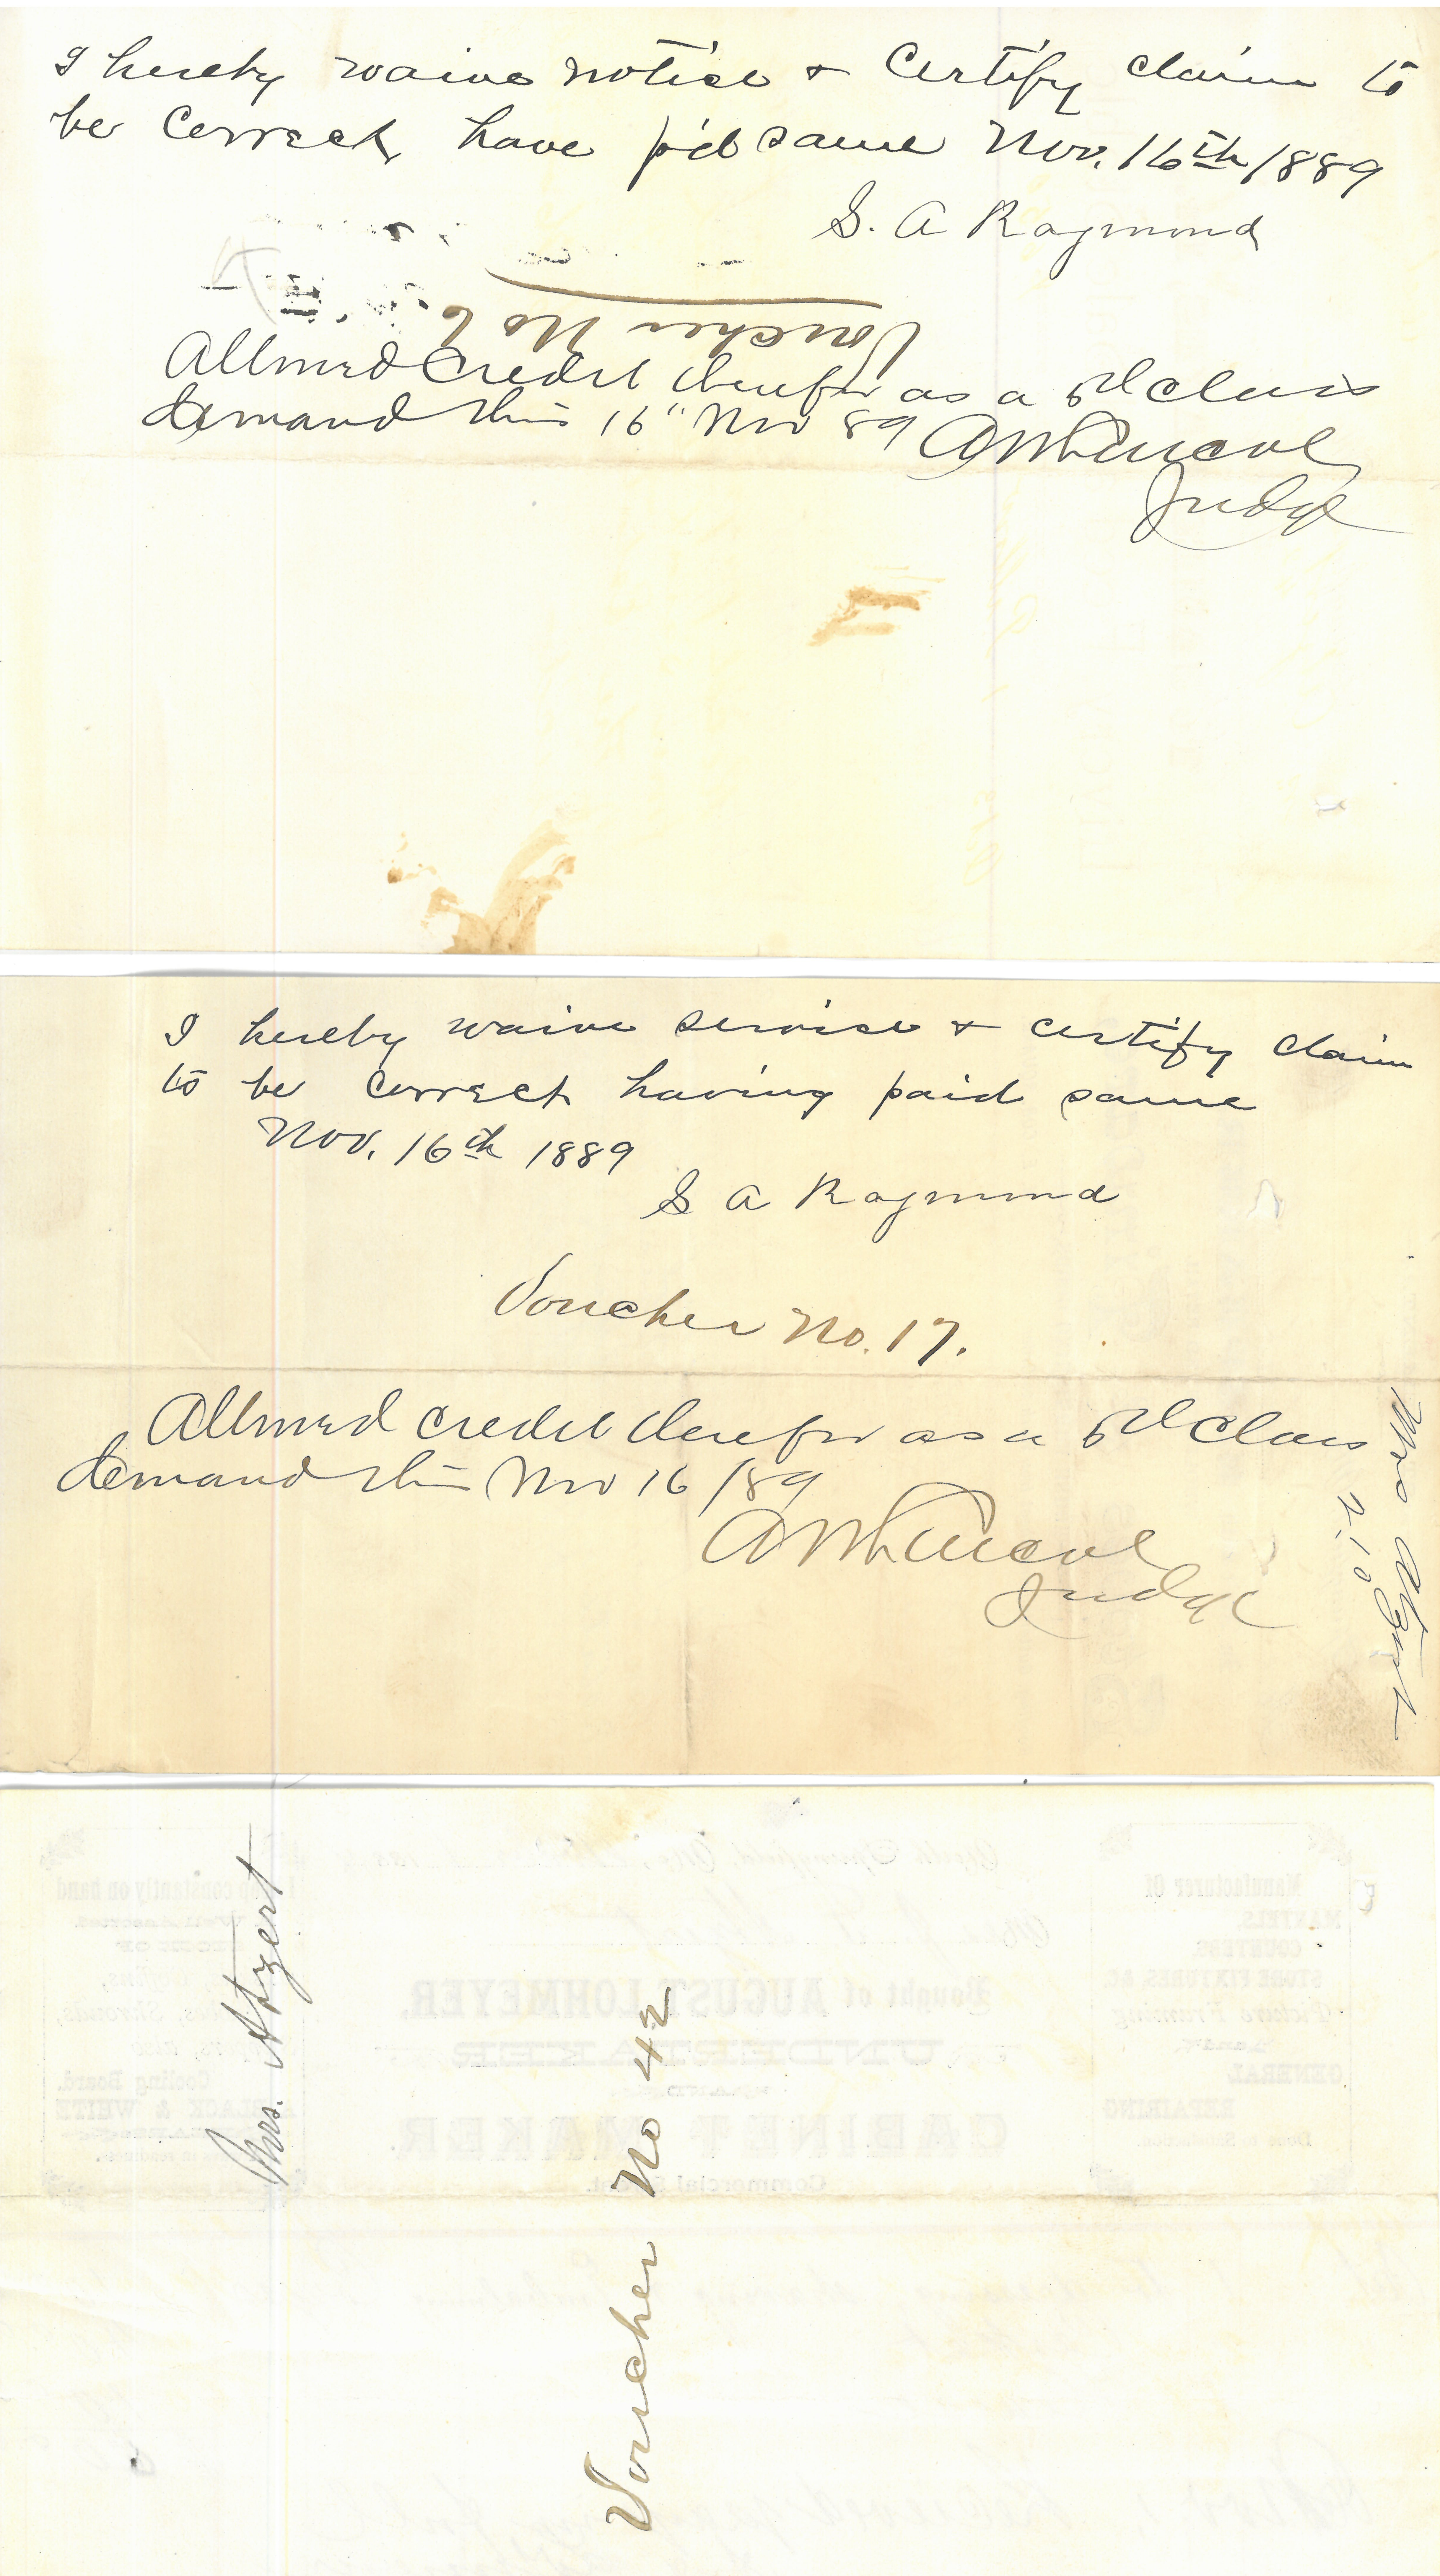 I hereby waive notice & Certify claim to
be Correct, have p'd same Nov. 16th 1889
S. A Raymond
Voucher No 6
Allowed Credit therefor as a 5th class
demand this 16" Nov 89
Judge
I hereby waive service & certify claim
to be correct having paid same
Nov. 16th 1889
S A Raymond
Voucher No. 17.
Allowed credit therefor as a 5th Class
demand this Nov 16/89
Judge
Mrs Atzert
2.10
Mrs. Atzert
Voucher No 42
Manufacturer Of
MANTELS,
COUNTERS,
STORE FIXTURES &C
Picture Framing
GENERAL
REPAIRING
Bought of AUGUST LOHMEYER,
UNDERTAKER
CABINET MAKER.
Commercial Street.
constantly on hand
Cooling Board.
BLACK & WHITE